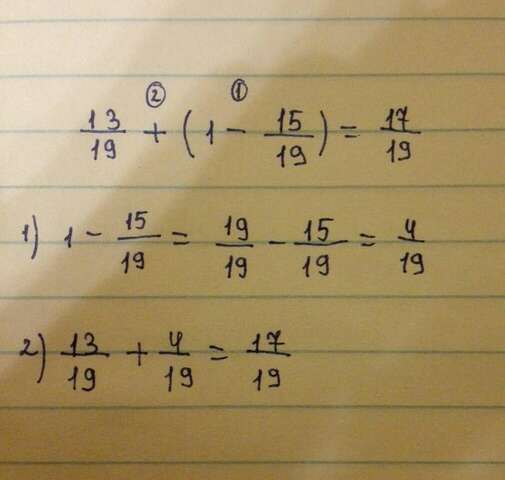 ② ①
13/19 + (1 - 15/19) = 17/19
1) 1 - 15/19 = 19/19 - 15/19 = 4/19
2) 13/19 + 4/19 = 17/19